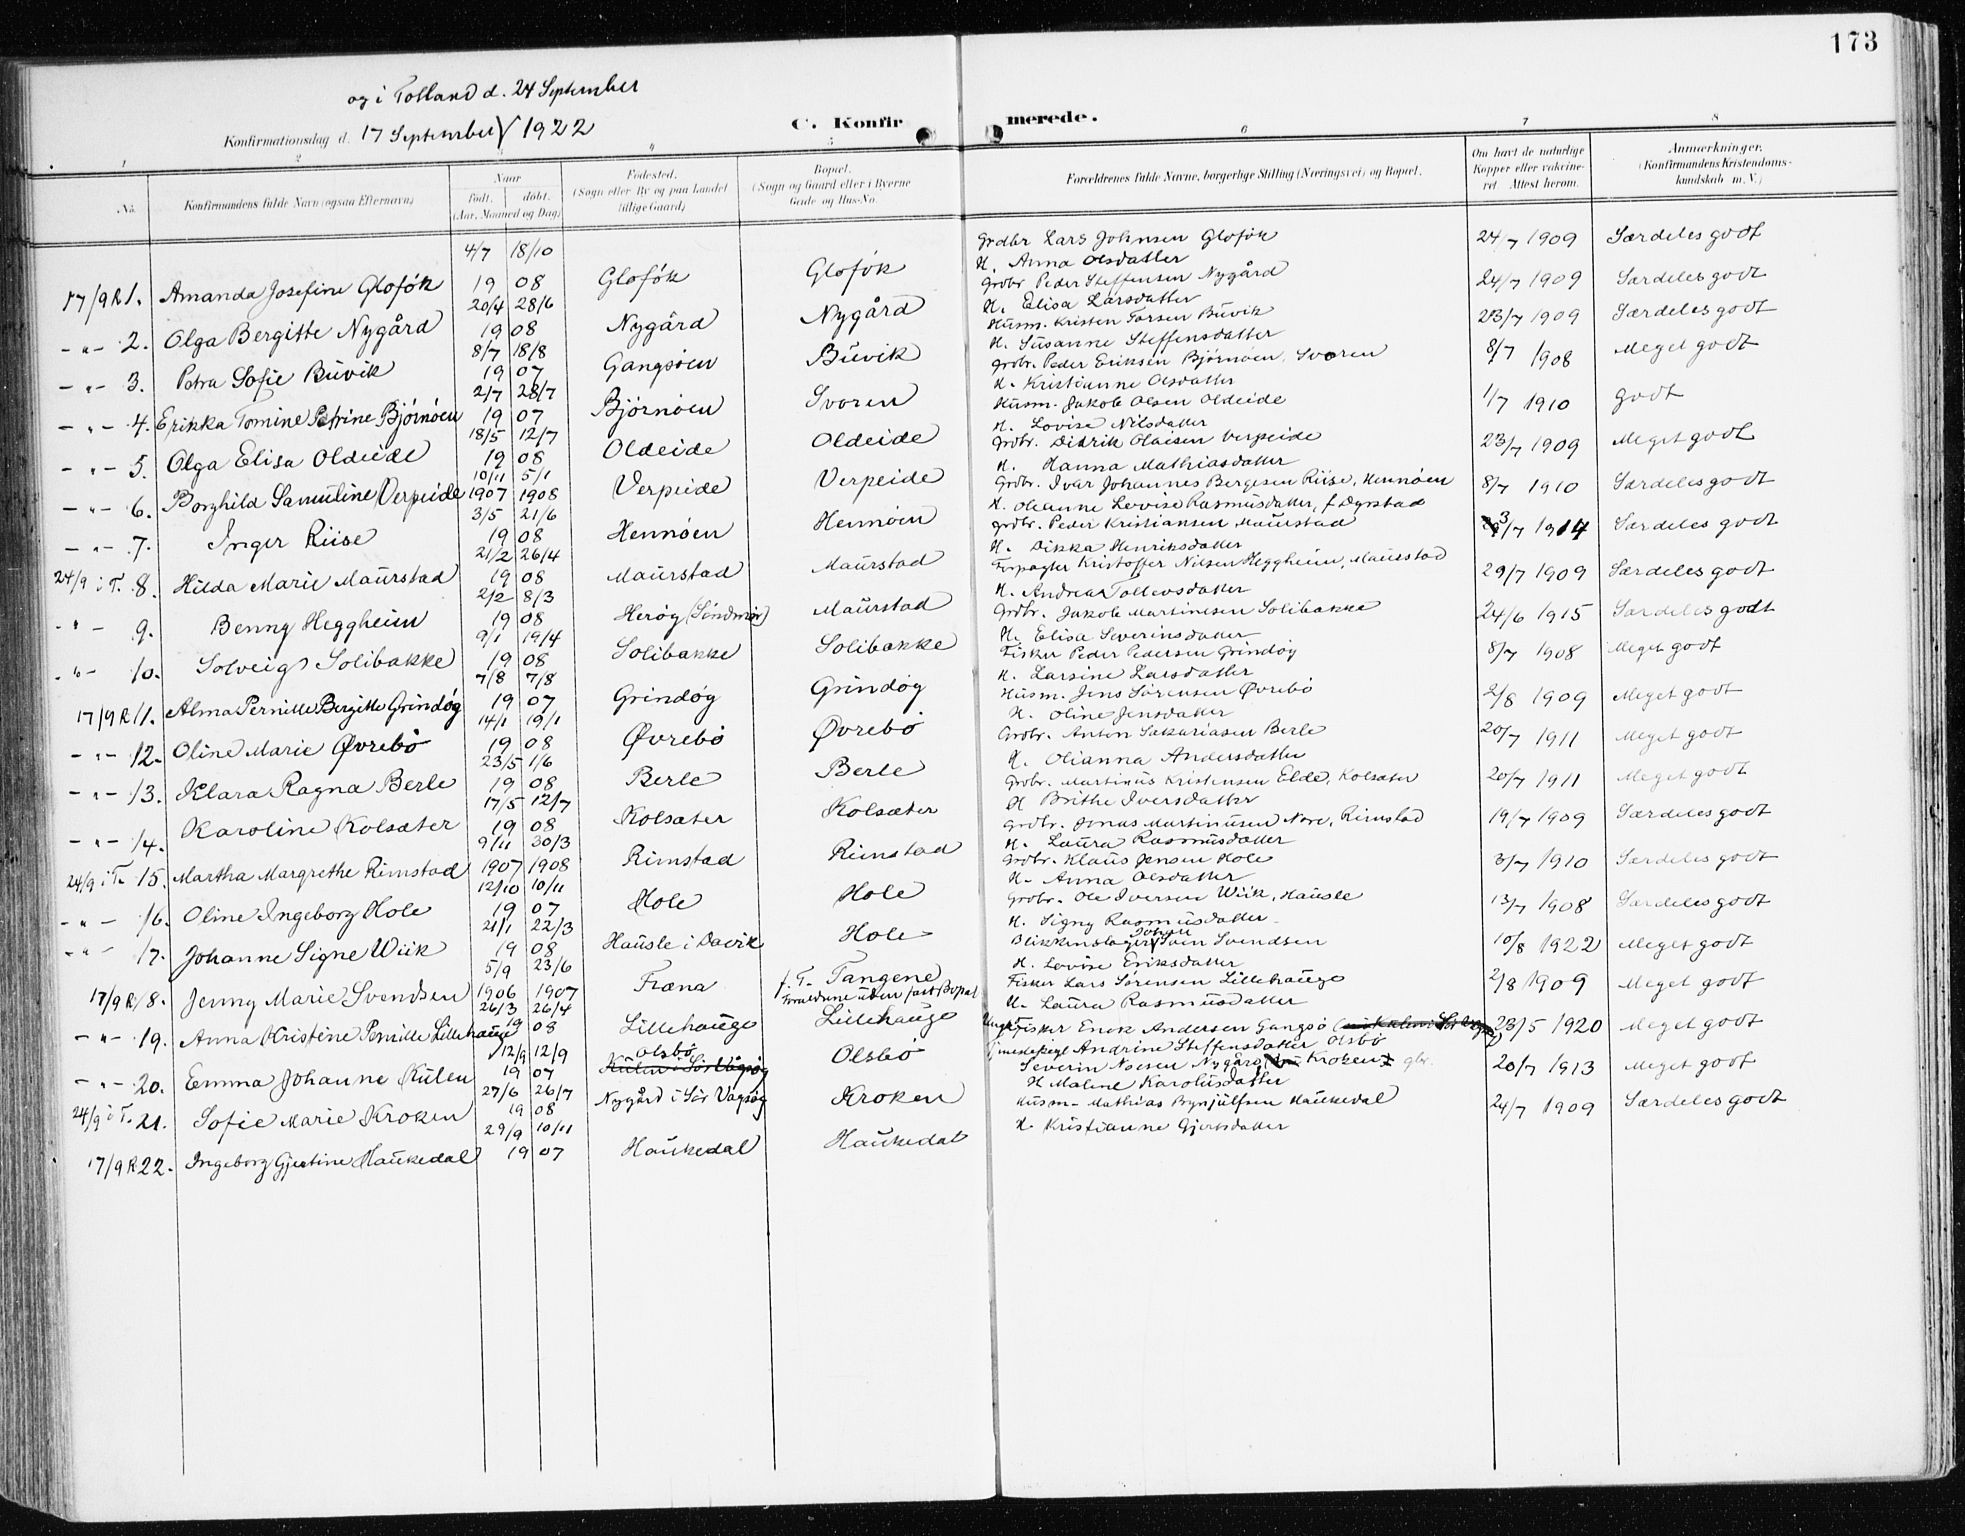 173
og i Totland d. 24 September
Konfirmationsdag d. 17 September 1922
C. Konfirmerede.
1 2 3 4 5 6 7 8
No. Konfirmandens fulde Navn (ogsaa Efternavn.)
Naar født. døbt. (Aar, Maaned og Dag)
Fødested. (Sogn eller By og paa Landet tillige Gaard.)
Bopæl. (Sogn og Gaard eller i Byerne Gade og Hus-No.
Forældrenes fulde Navne, borgerlige Stilling (Næringsvei) og Bopæl.
Om havt de naturlige Kopper eller vakcineret. Attest herom.
Anmærkninger. (Konfirmandens Kristendomskundskab m. V.)
17/9 R 1. Amanda Josefine Gloføk 4/7 1908 18/10 Gloføk Gloføk Grdbr Lars Johnsen Gloføk 24/7 1909 Særdeles godt
H. Anna Olsdatter
-"- 2. Olga Bergitte Nygård 20/4 28/6 1908 Nygård Nygård Grdbr Peder Steffensen Nygård 24/7 1909 Særdeles godt
H. Elisa Larsdatter
-"- 3. Petra Sofie Buvik 8/7 18/8 1907 Gangsøen Buvik Husm. Kristen Torsen Buvik 23/7 1909 Særdeles godt
H. Susanne Steffensdatter
-"- 4. Erikka Tomine Petrine Bjørnøen 2/7 28/7 1907 Bjørnøen Svoren Grdbr. Peder Eriksen Bjørnøen, Svoren 8/7 1908 Meget godt
H. Kristianne Olsdatter
-"- 5. Olga Elisa Oldeide 18/5 12/7 1908 Oldeide Oldeide Husm. Jakob Olsen Oldeide 1/7 1910 godt
H. Lovise Nilsdatter
-"- 6. Borghild Samuline Verpeide 10/11 5/1 1907 1908 Verpeide Verpeide Grdbr. Didrik Olaisen Verpeide 23/7 1909 Meget godt
H. Hanna Mathiasdatter
-"- 7. Inger Riise 3/5 21/6 1908 Hennøen Hennøen Grdbr. Ivar Johannes Bergesen Riise, Hennøen 8/7 1910 Særdeles godt
H. Oleanne Lovise Rasmusdatter, f. Dyrstad
24/9 i T. 8. Hilda Marie Maurstad 21/2 26/4 1908 Maurstad Maurstad Grdbr. Peder Kristiansen Maurstad 3/7 1914 Særdeles godt
H. Dikka Henriksdatter
-"- 9. Benny Heggheim 2/2 8/3 1908 Herøy (Søndmør) Maurstad Forpagter Kristoffer Nilsen Heggheim, Maurstad 29/7 1909 Særdeles godt
H. Andrea Tollevsdatter
-"- 10. Solveig Solibakke 9/1 19/4 1908 Solibakke Solibakke Grdbr. Jakob Martinesen Solibakke 24/6 1915 Særdeles godt
H. Elisa Severinsdatter
17/9 R 11. Alma Pernille Bergitte Grindøy 7/8 7/8 1907 Grindøy Grindøy Fisker Peder Pedersen Grindøy 8/7 1908 Meget godt
H. Larsine Larsdatter
-"- 12. Oline Marie Øvrebø 14/1 19/1 1908 Øvrebø Øvrebø Husm. Jens Sørensen Øvrebø 2/8 1909 Meget godt
H. Oline Jensdatter
-"- 13. Klara Ragna Berle 23/5 1/6 1908 Berle Berle Grdbr. Anton Sakariasen Berle 20/7 1911 Meget godt
H. Olianna Andersdatter
-"- 14. Karoline Kolsæter 17/5 12/7 1908 Kolsæter Kolsæter Grdbr. Martinus Kristensen Elde, Kolsæter 20/7 1911 Meget godt
H Brithe Iversdatter
24/9 i T. 15. Martha Margrethe Rimstad 9/11 30/3 1907 1908 Rimstad Rimstad Grdbr. Jonas Martinusen Nore, Rimstad 19/7 1909 Særdeles godt
H. Laura Rasmusdatter
-"- 16. Oline Ingeborg Hole 12/10 10/11 1907 Hole Hole Grdbr. Klaus Jensen Hole 3/7 1910 Særdeles godt
H. Anna Olsdatter
-"- 17. Johanne Signe Wiik 21/1 22/3 1908 Hausle i Davik Hole Grdbr. Ole Iversen Wiik, Hausle 13/7 1908 Særdeles godt
H. Signy Rasmusdatter
17/9 R 18. Jenny Marie Svendsen 5/9 23/6 1906 1907 Fræna f. T. Tangene Forældrene uten fast Bopæl Blikkenslager Johan Sven Svendsen 10/8 1922 Meget godt
H. Lovise Eriksdatter
-"- 19. Anna Kristine Pernille Lillehauge 26/3 26/4 1908 Lillehauge Lillehauge Fisker Lars Sørensen Lillehauge 2/8 1909 Meget godt
H. Laura Rasmusdatter
-"- 20. Emma Johanne Kulen 12/9 12/9 1907 Olsbø Kulen i Sør Vågsøy Olsbø Ungk. Fisker Enok Andersen Gangsø 23/5 1920 Meget godt
Andrine Steffensdatter Olsbø
24/9 i T. 21. Sofie Marie Kroken 27/6 26/7 1908 Nygård i Sør Vågsøy Kroken Severin Noesen Nygård, Kroken gbr. 20/7 1913 Meget godt
H Malene Karolusdatter
17/9 R 22. Ingeborg Gjertine Haukedal 29/9 10/11 1907 Haukedal Haukedal Husm. Mathias Brynjulfsen Haukedal 24/7 1909 Særdeles godt
H. Kristianne Gjertsdatter